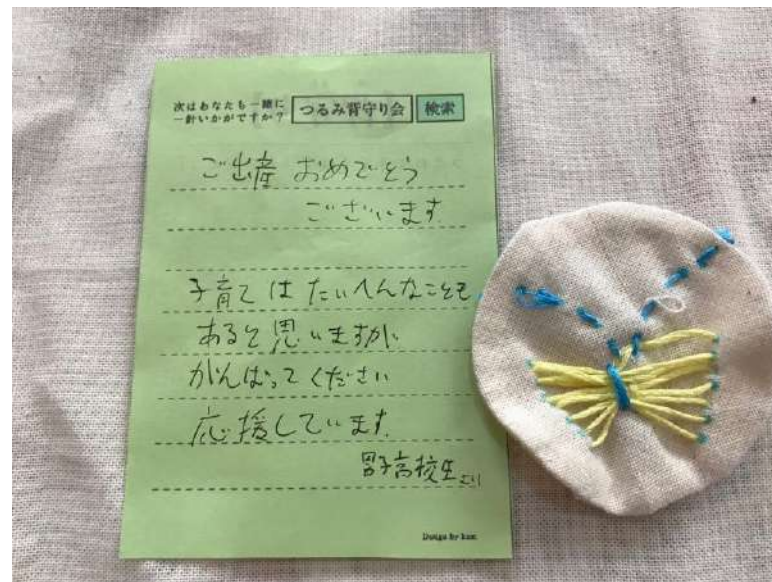 次はあなたも一緒に
一針いかがですか？
つるみ背守り会 検索
ご出産 おめでとう
ございます
子育ては たいへんなことも
あると思いますが
がんばってください
応援しています。
男子高校生より
Design by